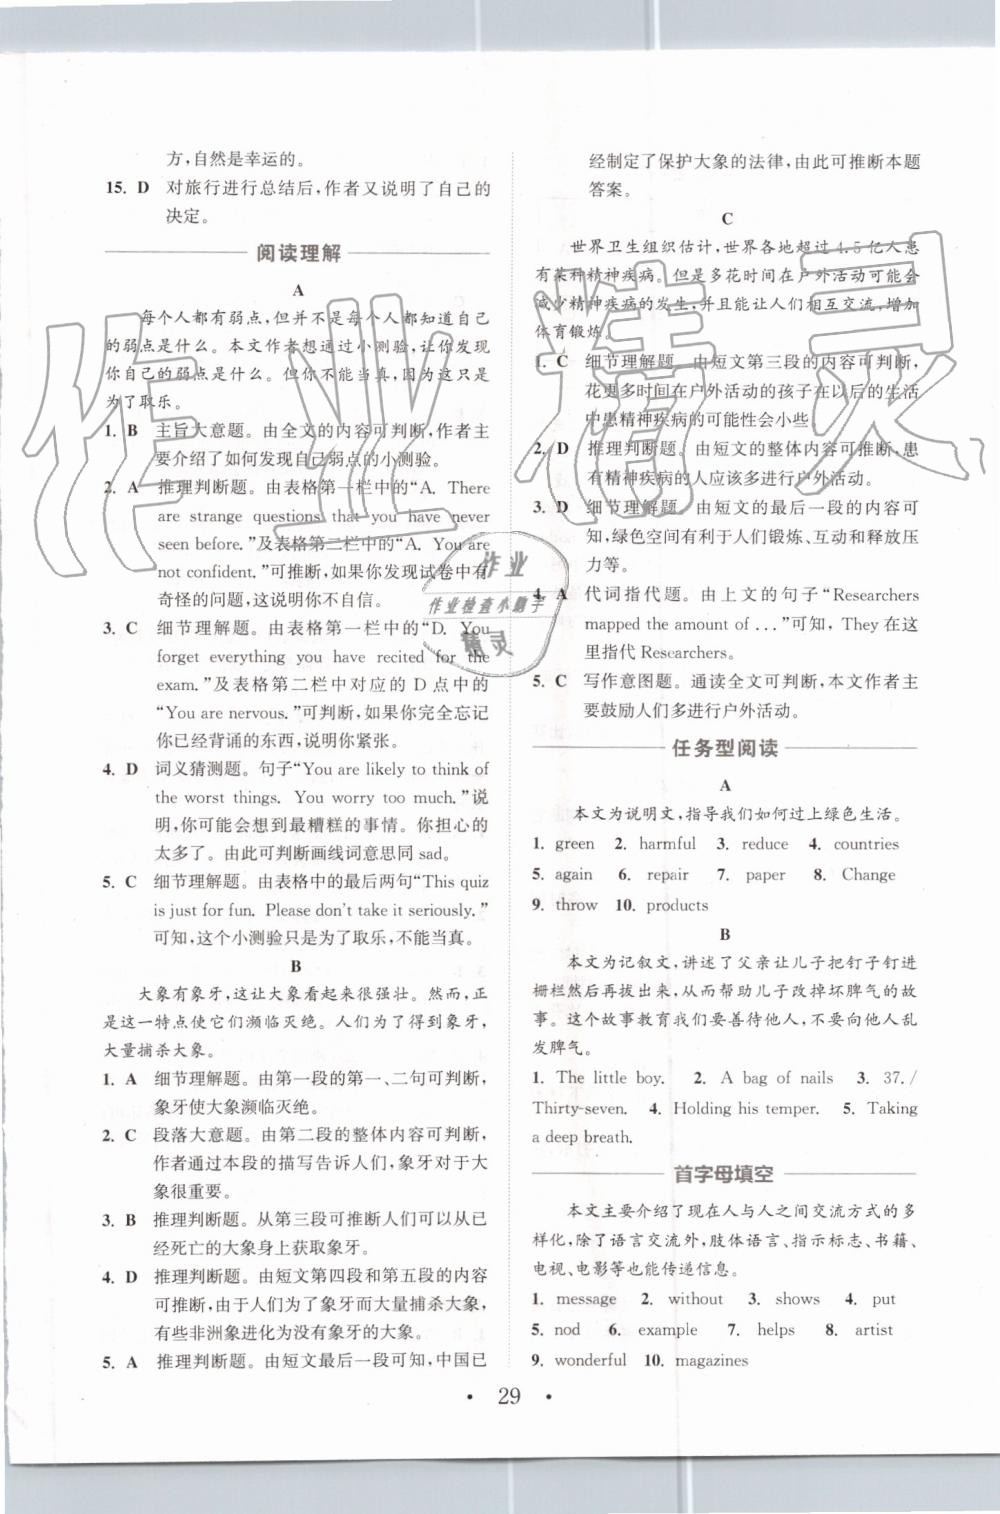 方,自然是幸运的。
15. D 对旅行进行总结后,作者又说明了自己的
决定。
阅读理解
A
每个人都有弱点,但并不是每个人都知道自己
的弱点是什么。本文作者想通过小测验,让你发现
你自己的弱点是什么。但你不能当真,因为这只是
为了取乐。
1. B 主旨大意题。由全文的内容可判断,作者主
要介绍了如何发现自己弱点的小测验。
2. A 推理判断题。由表格第一栏中的“A. There
are strange questions that you have never
seen before.”及表格第二栏中的“A. You are
not confident.”可推断,如果你发现试卷中有
奇怪的问题,这说明你不自信。
3. C 细节理解题。由表格第一栏中的“D. You
forget everything you have recited for the
exam.”及表格第二栏中对应的 D 点中的
“You are nervous.”可判断,如果你完全忘记
你已经背诵的东西,说明你紧张。
4. D 词义猜测题。句子“You are likely to think of
the worst things. You worry too much.”说
明,你可能会想到最糟糕的事情。你担心的
太多了。由此可判断画线词意思同 sad。
5. C 细节理解题。由表格中的最后两句“This quiz
is just for fun. Please don't take it seriously.”
可知,这个小测验只是为了取乐,不能当真。
B
大象有象牙,这让大象看起来很强壮。然而,正
是这一特点使它们濒临灭绝。人们为了得到象牙,
大量捕杀大象。
1. A 细节理解题。由第一段的第一、二句可判断,
象牙使大象濒临灭绝。
2. C 段落大意题。由第二段的整体内容可判断,
作者通过本段的描写告诉人们,象牙对于大
象很重要。
3. B 推理判断题。从第三段可推断人们可以从已
经死亡的大象身上获取象牙。
4. D 推理判断题。由短文第四段和第五段的内容
可推断,由于人们为了象牙而大量捕杀大象,
有些非洲象进化为没有象牙的大象。
5. A 推理判断题。由短文最后一段可知,中国已
经制定了保护大象的法律,由此可推断本题
答案。
C
世界卫生组织估计,世界各地超过 4.5 亿人患
有某种精神疾病。但是多花时间在户外活动可能会
减少精神疾病的发生,并且能让人们相互交流,增加
体育锻炼。
1. C 细节理解题。由短文第三段的内容可判断,
花更多时间在户外活动的孩子在以后的生活
中患精神疾病的可能性会小些。
2. D 推理判断题。由短文的整体内容可推断,患
有精神疾病的人应该多进行户外活动。
3. D 细节理解题。由短文的最后一段的内容可
知,绿色空间有利于人们锻炼、互动和释放压
力等。
4. A 代词指代题。由上文的句子“Researchers
mapped the amount of ...”可知, They 在这
里指代 Researchers。
5. C 写作意图题。通读全文可判断,本文作者主
要鼓励人们多进行户外活动。
任务型阅读
A
本文为说明文,指导我们如何过上绿色生活。
1. green 2. harmful 3. reduce 4. countries
5. again 6. repair 7. paper 8. Change
9. throw 10. products
B
本文为记叙文,讲述了父亲让儿子把钉子钉进
栅栏然后再拔出来,从而帮助儿子改掉坏脾气的故
事。这个故事教育我们要善待他人,不要向他人乱
发脾气。
1. The little boy. 2. A bag of nails 3. 37. /
Thirty-seven. 4. Holding his temper. 5. Taking
a deep breath.
首字母填空
本文主要介绍了现在人与人之间交流方式的多
样化,除了语言交流外,肢体语言、指示标志、书籍、
电视、电影等也能传递信息。
1. message 2. without 3. shows 4. put
5. nod 6. example 7. helps 8. artist
9. wonderful 10. magazines
• 29 •
作业精灵
作业
作业检查小助手
精灵